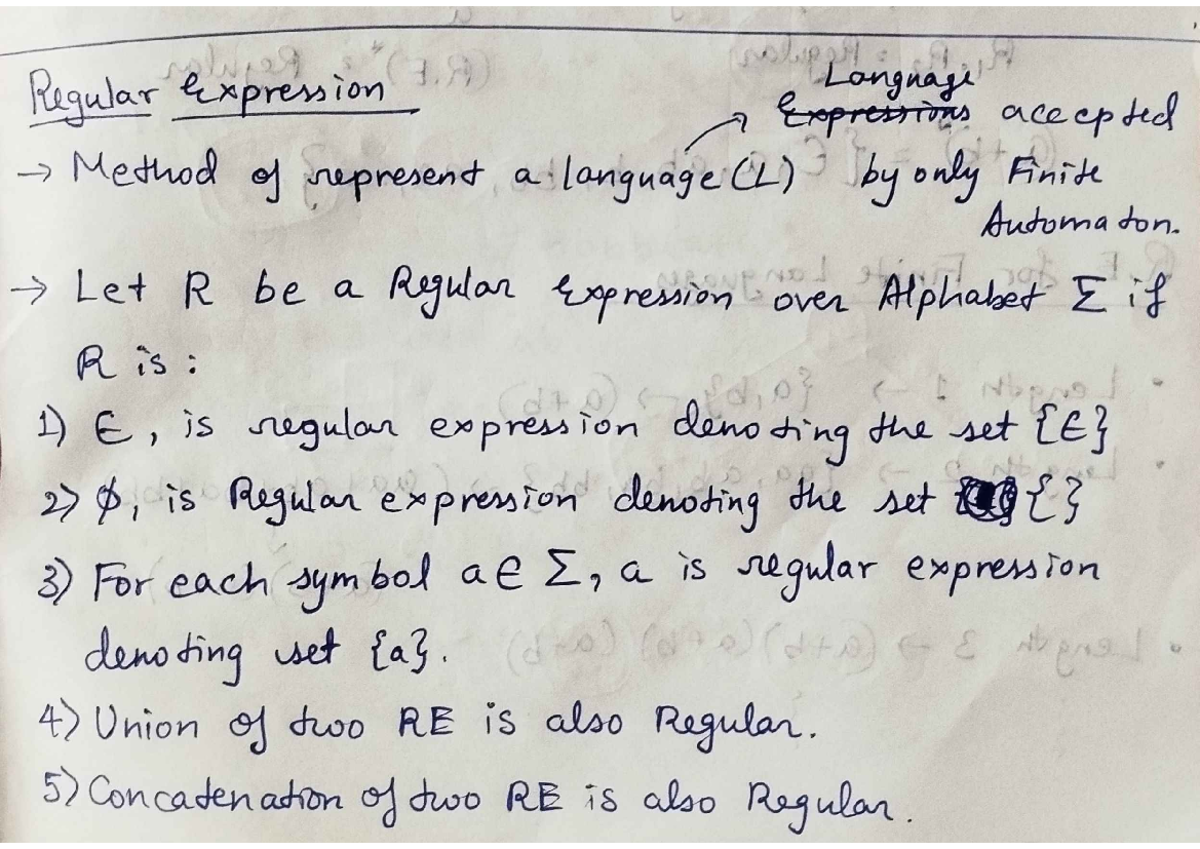 Regular Expression
Language
Expressions accepted
→ Method of represent a language (L) by only Finite
Automaton.
→ Let R be a Regular Expression over Alphabet Σ if
R is :
1) ∈, is regular expression denoting the set {∈}
2) ϕ, is Regular expression denoting the set {}
3) For each symbol a ∈ Σ, a is regular expression
denoting set {a}.
4) Union of two RE is also Regular.
5) Concatenation of two RE is also Regular.